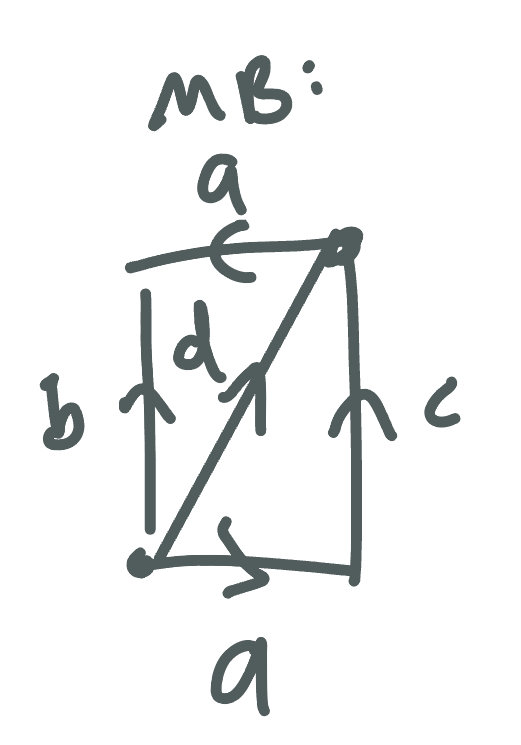 MB:
a
d
b
c
a